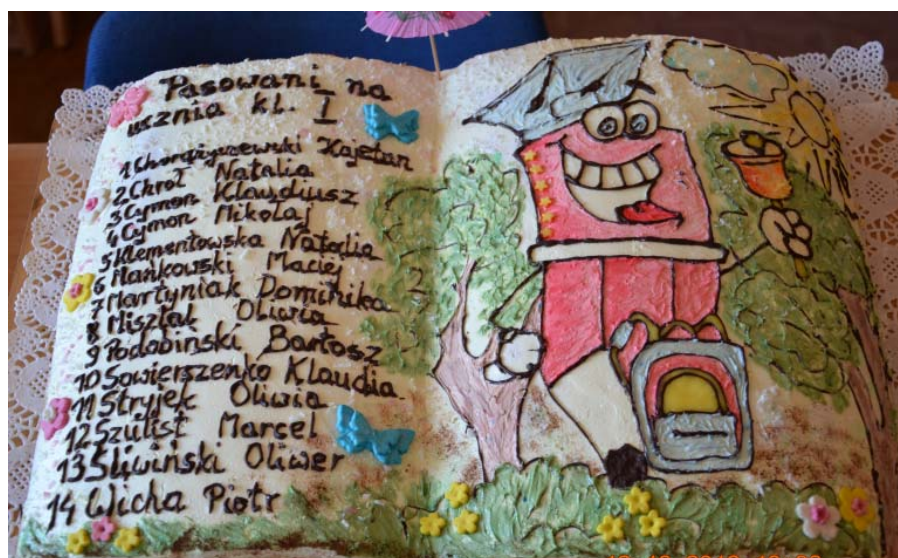 Pasowani na
ucznia kl. I
1 Chorążyczewski Kajetan
2 Chról Natalia
3 Cymon Klaudiusz
4 Cymon Mikolaj
5 Klementowska Natalia
6 Mańkowski Maciej
7 Martyniak Dominika
8 Misztal Oliwia
9 Podobiński Bartosz
10 Sowierszenko Klaudia
11 Stryjek Oliwia
12 Szulist Marcel
13 Śliwiński Oliwer
14 Wicha Piotr